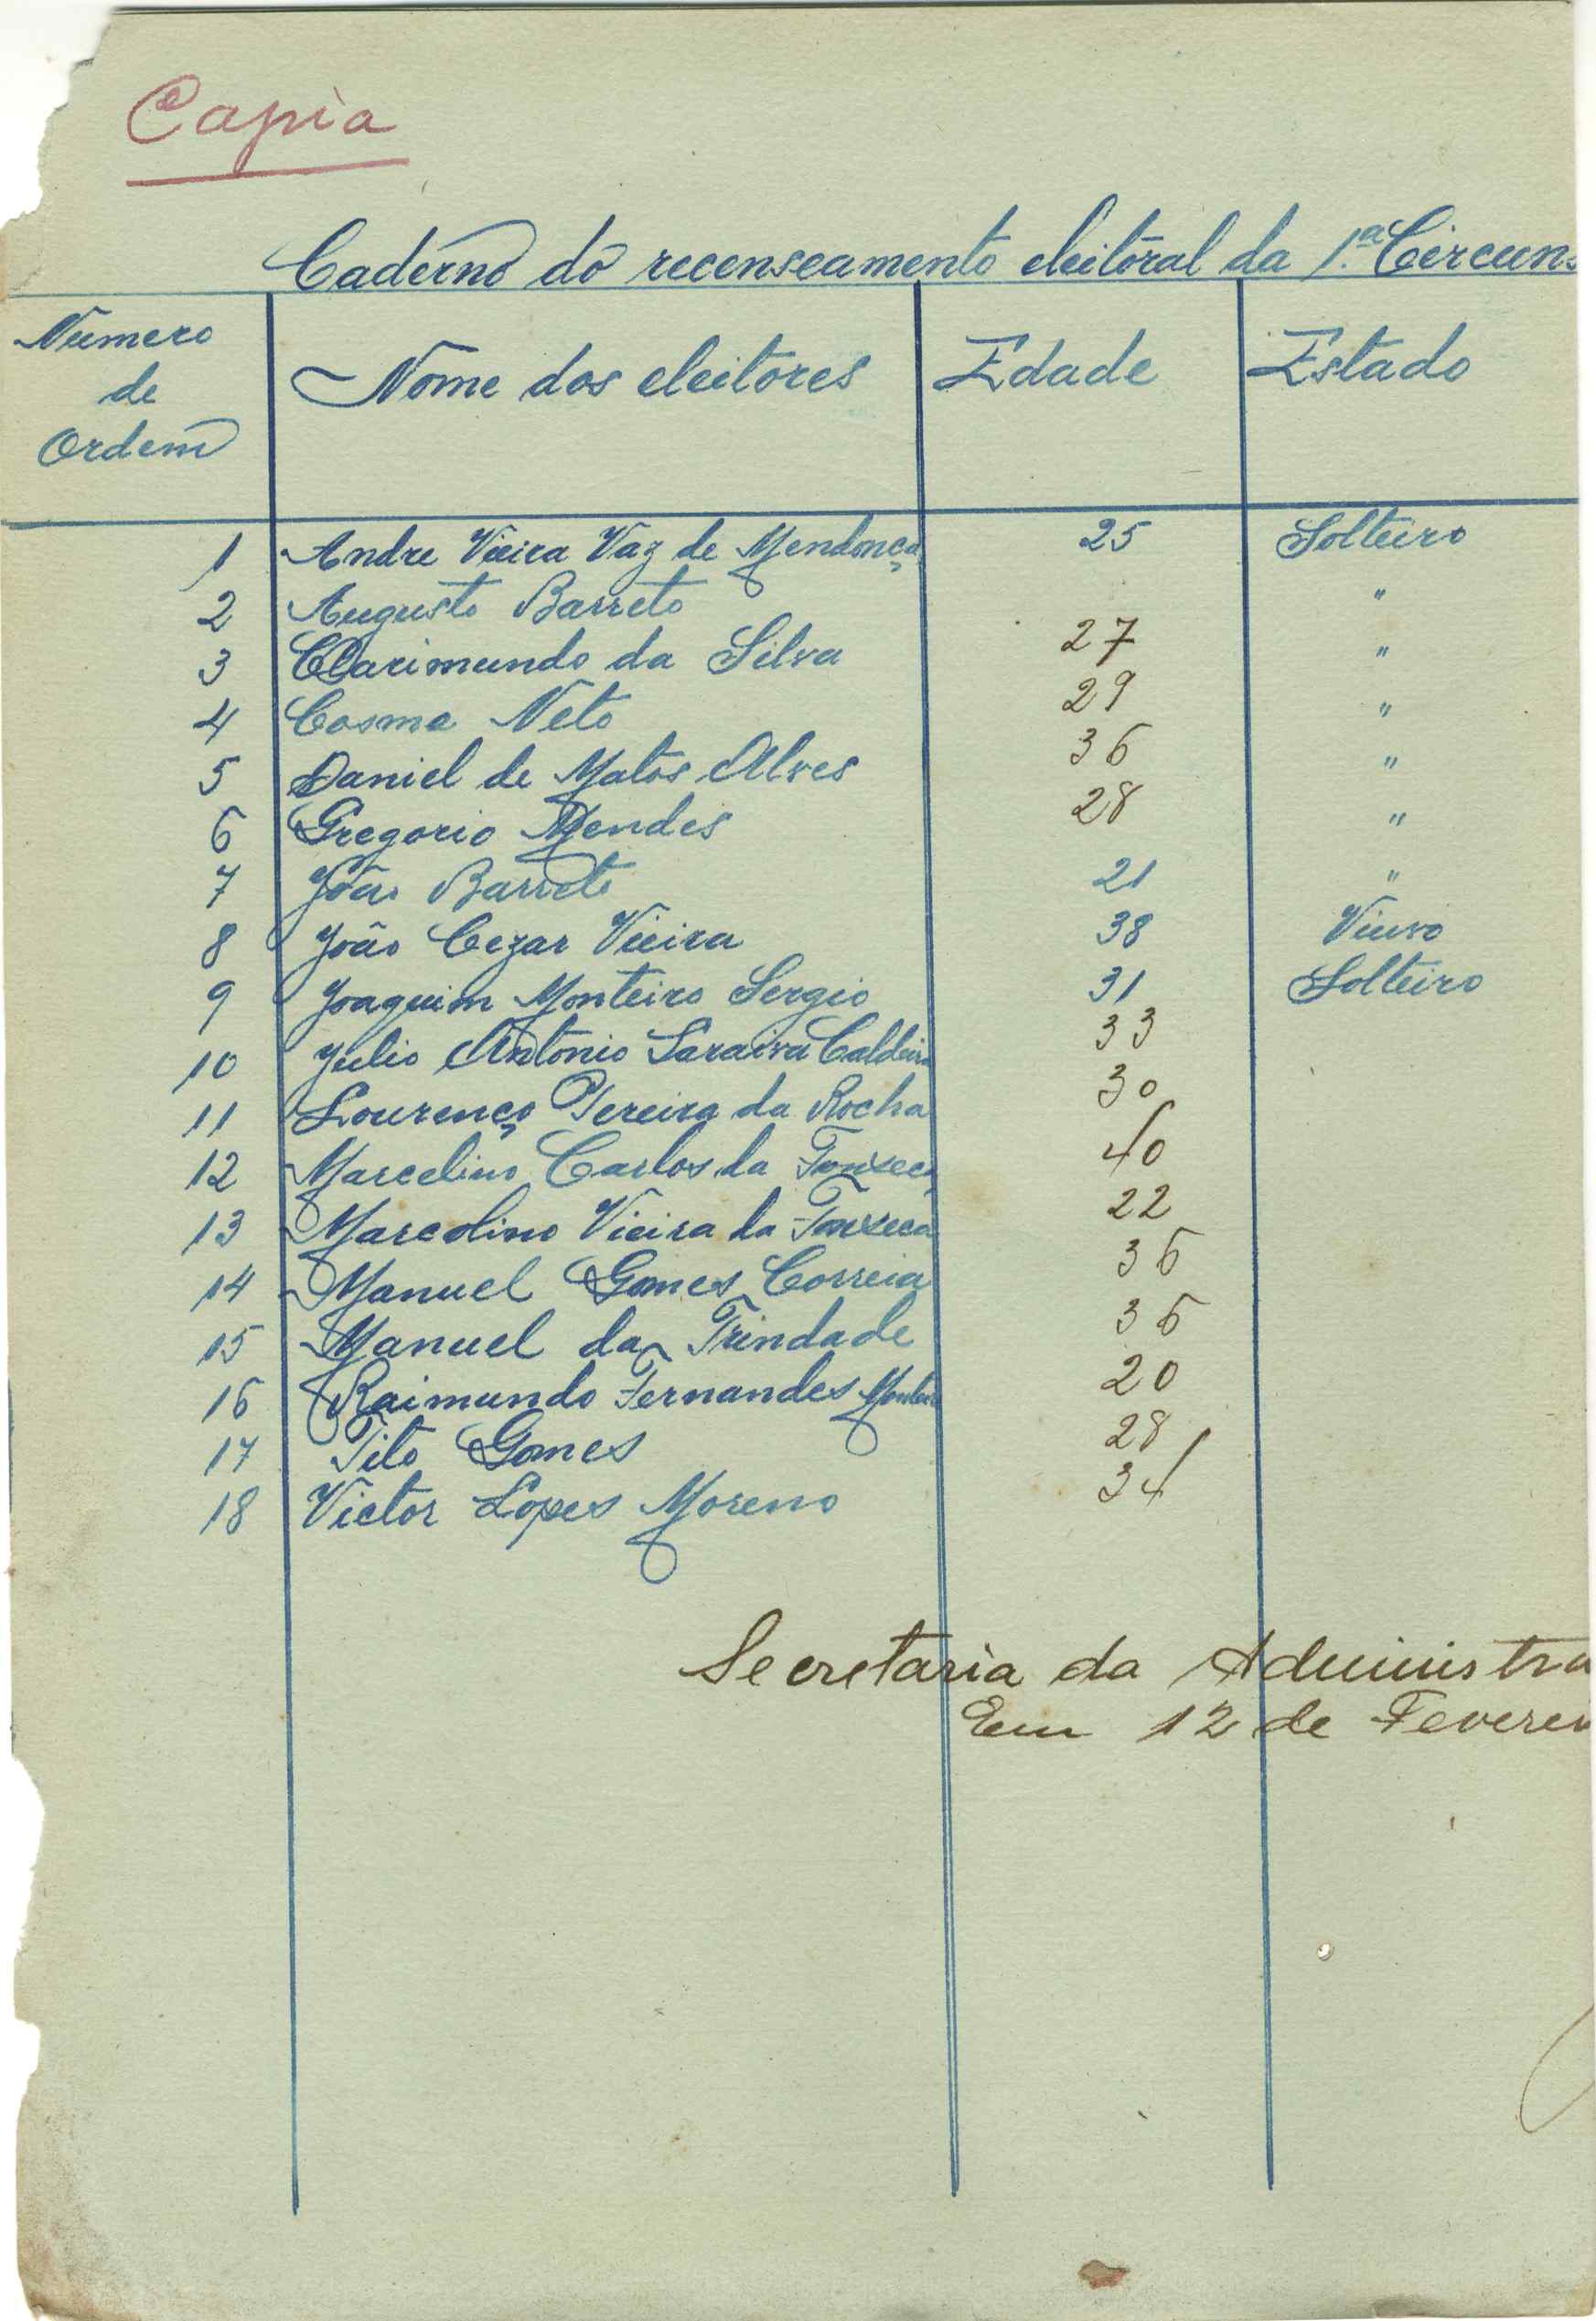 Copia
Caderno do recenseamento eleitoral da 1.ª Circuns
Numero de Ordem Nome dos eleitores Edade Estado
1 Andre Vieira Vaz de Mendonça 25 Solteiro
2 Augusto Barreto "
3 Clarimundo da Silva 27 "
4 Cosme Neto 29 "
5 Daniel de Matos Alves 36 "
6 Gregorio Mendes 28 "
7 João Barreto 21 "
8 João Cezar Vieira 38 Viuvo
9 Joaquim Monteiro Sergio 31 Solteiro
10 Julio Antonio Saraiva Caldeira 33
11 Lourenço Pereira da Rocha 30
12 Marcelino Carlos da Fonseca 40
13 Marcolino Vieira da Fonseca 22
14 Manuel Gomes Correia 36
15 Manuel da Trindade 36
16 Raimundo Fernandes 20
17 Tito Gomes 28
18 Victor Lopes Moreno 34
Secretaria da Administra
Em 12 de Feverei